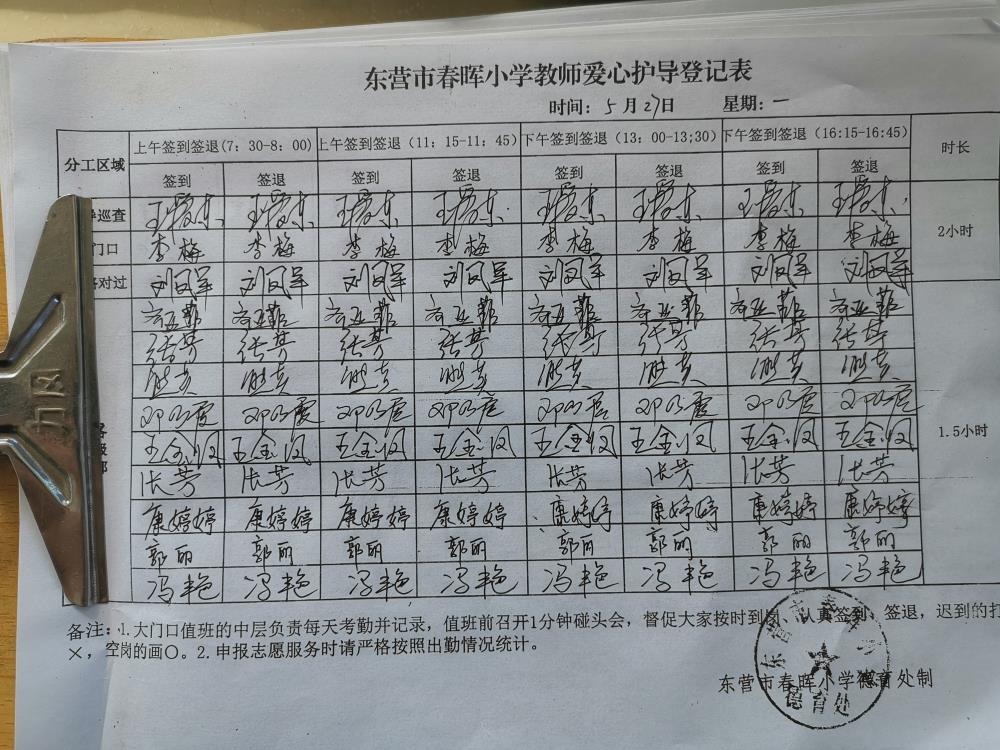 东营市春晖小学教师爱心护导登记表
时间: 5 月 27日 星期: 一
分工区域 上午签到签退(7: 30-8: 00) 上午签到签退(11: 15-11: 45) 下午签到签退(13: 00-13;30) 下午签到签退(16:15-16:45) 时长
签到 签退 签到 签退 签到 签退 签到 签退
巡查 王爱东 王爱东 王爱东 王爱东 王爱东 王爱东 王爱东 王爱东 2小时
门口 李梅 李梅 李梅 李梅 李梅 李梅 李梅 李梅
对过 刘凤军 刘凤军 刘凤军 刘凤军 刘凤军 刘凤军 刘凤军 刘凤军
张芳 张芳 张芳 张芳 张芳 张芳 张芳 张芳
邓乃霞 邓乃霞 邓乃霞 邓乃霞 邓乃霞 邓乃霞 邓乃霞 邓乃霞
王金凤 王金凤 王金凤 王金凤 王金凤 王金凤 王金凤 王金凤 1.5小时
张芳 张芳 张芳 张芳 张芳 张芳 张芳 张芳
康婷婷 康婷婷 康婷婷 康婷婷 康婷婷 康婷婷 康婷婷 康婷婷
郭丽 郭丽 郭丽 郭丽 郭丽 郭丽 郭丽 郭丽
冯艳 冯艳 冯艳 冯艳 冯艳 冯艳 冯艳 冯艳
备注: 1.大门口值班的中层负责每天考勤并记录，值班前召开1分钟碰头会，督促大家按时到岗、认真签到、签退，迟到的打
×，空岗的画〇。2.申报志愿服务时请严格按照出勤情况统计。
东营市春晖小学德育处制
德育处